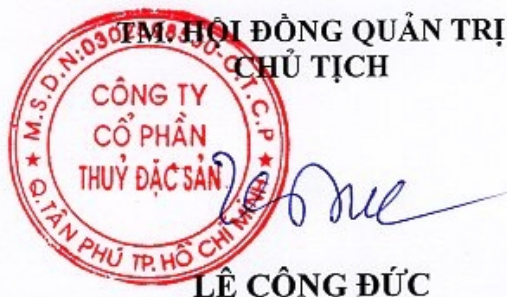 TM. HỘI ĐỒNG QUẢN TRỊ
CHỦ TỊCH
CÔNG TY
CỔ PHẦN
THUỶ ĐẶC SẢN
Q.TÂN PHÚ TP. HỒ CHÍ MINH
LÊ CÔNG ĐỨC